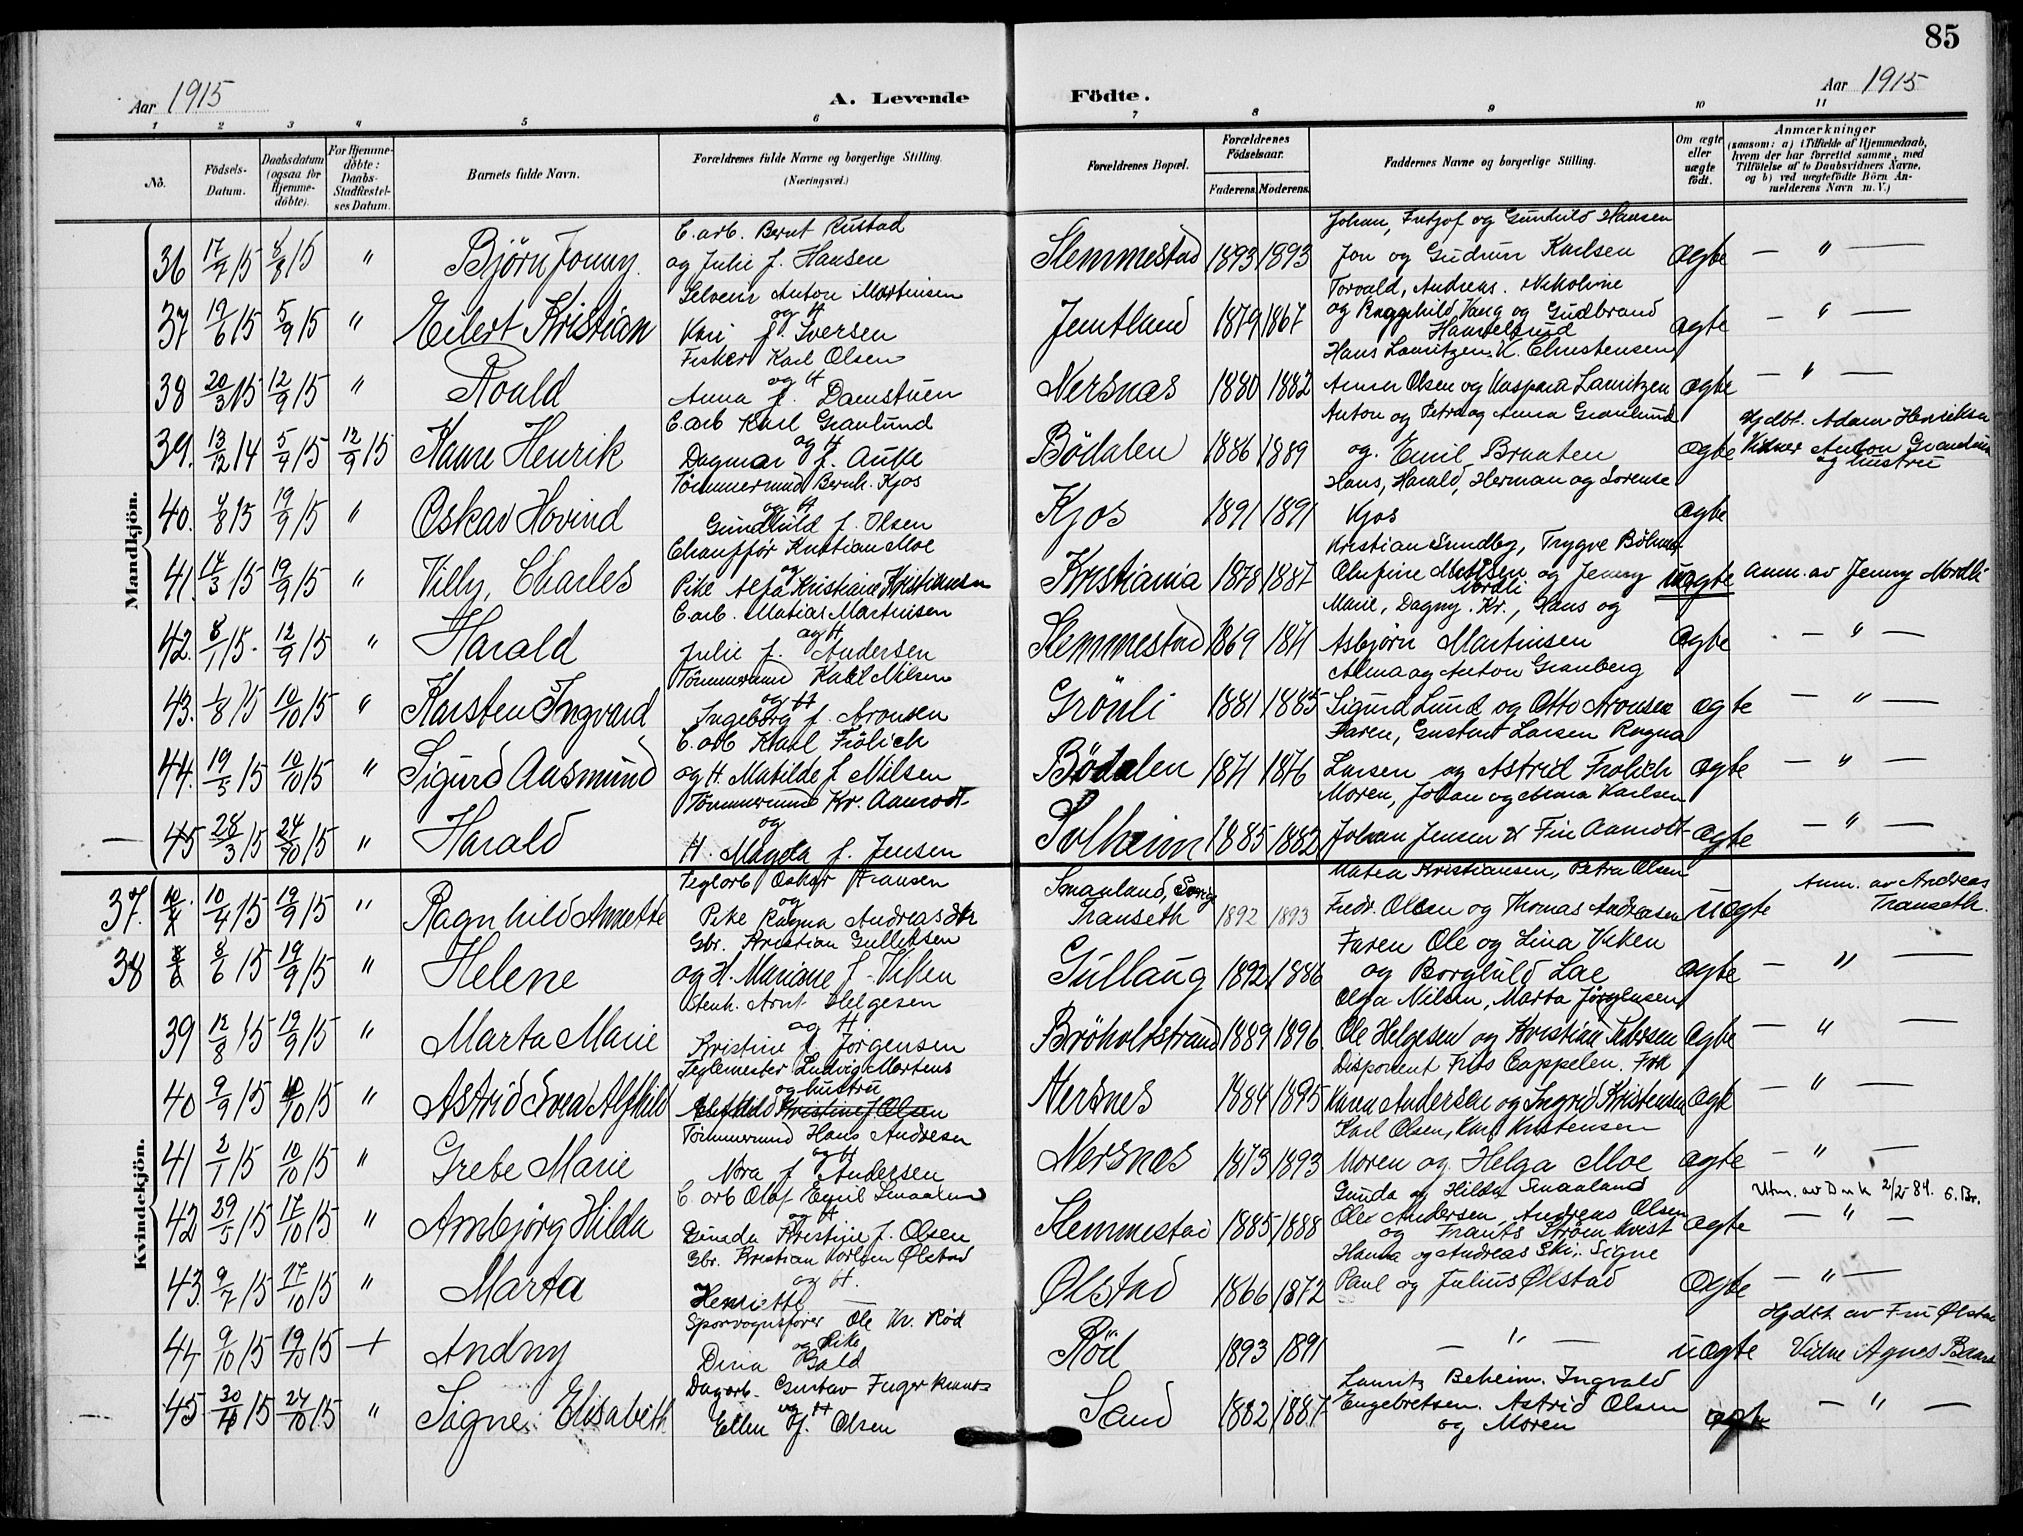 85
Aar 1915
A. Levende
Födte.
Aar 1915
1 2 3 4 5 6 7 8 9 10 11
No.
Födsels-Datum.
Daabsdatum (ogsaa for Hjemme-döbte).
For Hjemme-döbte: Daabs-Stadfæstel-ses Datum.
Barnets fulde Navn.
Forældrenes fulde Navne og borgerlige Stilling. (Næringsvei.)
Forældrenes Bopæl.
Forældrenes Födselsaar.
Faderens. Moderens.
Faddernes Navne og borgerlige Stilling.
Om ægte eller uægte födt.
Anmærkninger
(saasom: a) i Tilfælde af Hjemmedaab, hvem der har forrettet samme, med Tilföielse af to Daabsvidners Navne, og b) ved uægtefödte Börn An-melderens Navn m. V.)
Mandkjön.
E. arb. Bernt Rustad Johan, Fritjof og Gunhild Hansen
36 17/7 15 8/8 15 " Bjørn Jonny. og Julie f. Hansen Slemmestad 1893 1893 Jon og Gudrun Karlsen ægte — " —
Selveier Anton Martinsen Torvald, Andreas. Nikoline
37 19/6 15 5/9 15 " Eilert Kristian og H Kari f. Iversen Jemtland 1879 1867 og Ragnhild Vang og Gudbrand ægte — " —
Fisker Karl Olsen Hans Lauritzen. K. Christensen
38 20/3 15 12/9 15 " Roald og H Anna f. Damstuen Nersnæs 1880 1882 Anna Olsen og Kaspara Lauritzen ægte — " —
E. arb Karl Granlund Anton og Petra og Anna Granlund Hjdbt. Adam Henriksen
39. 13/12 14 5/4 15 12/9 15 Kaare Henrik og H Dagmar f. Auke Bödalen 1886 1889 og. Emil Braaten ægte Vidner Anton Granlund og hustru
Tömmermand Bernh. Kjos Hans, Harald, Herman og Lorense
40. 4/8 15 19/9 15 " Oskar Hovind og H Gundhild f. Olsen Kjos 1891 1891 Kjos ægte
Chauffør Kristian Moe Kristian Sundby, Trygve
41. 14/3 15 19/9 15 " Villy, Charles og Pike Alfa Kristiane Kristiansen Kristiania 1878 1887 Olufine og Jenny Nordli uægte anm. av Jenny Nordli
E. arb. Matias Martinsen Marie, Dagny. Kr., Hans og
42. 8/1 15. 12/9 15 " Harald og H Julie f. Andersen Slemmestad 1869 1871 Asbjørn Martinsen ægte — " —
Tömmermand Karl Nilsen Alma og Anton Granberg
43. 1/8 15 10/10 15 " Karsten Ingvard og H Ingeborg f. Aronsen Grönli 1881 1885 Sigurd Lund og Otto Aronsen ægte — " —
E. arb Karl Frölich Faren, Gustav Larsen Ragna
44. 19/5 15 10/10 15 " Sigurd Aasmund og H. Matilde f Nilsen Bödalen 1871 1876 Larsen og Astrid Frolich ægte — " —
Tömmermand Kr. Aamodt Moren, Johan og Anna Karlsen
— 45 28/3 15 24/10 15 " Harald og H. Magda f. Jensen Solheim 1885 1882 Johan Jensen & Fin Aamodt ægte — " —
Kvindekjön.
Teglarb Oskar Fransen Smaaland, Sverig Matea Kristiansen, Petra Olsen Anm. av Andreas
37. 10/4 15 19/9 15 " Ragnhild Annette og Pike Ragna Andreasdtr Transeth 1892 1893 Fredr. Olsen og Thomas Andreasen uægte Transeth.
Gbr. Kristian Gulliksen Faren Ole og Lina Viken
38 8/6 15 19/9 15 " Helene og H. Mariane f. Viken Gullaug 1892 1886 og Borghild Lae ægte — " —
Stenh. Arnt Helgesen Olga Nilsen, Marta Jørgensen
39 12/8 15 19/9 15 " Marta Marie og H. Kristine f. Jørgensen Bröholtstrand 1889 1896 Ole Helgesen og Kristian ægte — " —
Teglemester Ludvig Martens Disponent Frits Cappelen. Frk
40 9/9 15 10/10 15 " Astrid Svea Alfhild og hustru Alfhild Kristine f Olsen Nersnes 1884 1895 Karen Andersen og Ingrid Kristensen ægte — " —
Tömmermand Hans Andresen Karl Olsen, Karl Kristensen
41 2/1 15 10/10 15 " Grete Marie og H Nora f Andersen Nersnæs 1873 1893 Moren og Helga Moe ægte — " —
E. arb Olaf Emil Smaaland Gunda og Hilda Smaaland Utm. av D n k 2/2-84. G. Br.
42 29/5 15 17/10 15 " Arnbjørg Hilda og H Gunda Kristine f. Olsen Slemmestad 1885 1888 Ole Andersen, Andreas Olsen og Frants Strøm Kvist ægte — " —
Gbr. Kristian Karlsen Ølstad Hanna og Andreas Ski. Signe
43. 9/7 15 17/10 15 " Marta og H. Henriette — Ølstad 1866 1872 Paul og Julius Ølstad ægte — " —
Sporvognsfører Ole Kr. Rød Hjdbt av Fru Ølstad
44 9/10 15 19/10 15 + Andny og Pike Dina Bald Rød 1893 1891 — " — uægte Vidne Agnes
Dagarb. Gustav Laurits Beheim. Ingvald
45 30/10 15 24/10 15 " Signe Elisabeth og H Ellen f. Olsen Sand 1882 1887 Engebretsen. Astrid Olsen og Moren ægte — " —